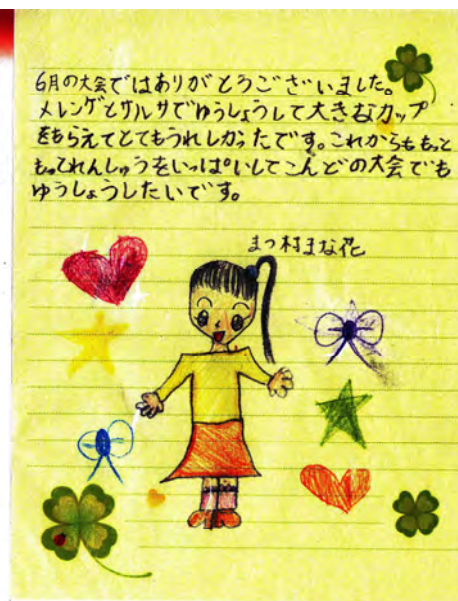 6月の大会ではありがとうございました。
メレンゲとサルサでゆうしょうして大きなカップ
をもらえてとてもうれしかったです。これからももっと
もっとれんしゅうをいっぱいしてこんどの大会でも
ゆうしょうしたいです。
まつ村まな花